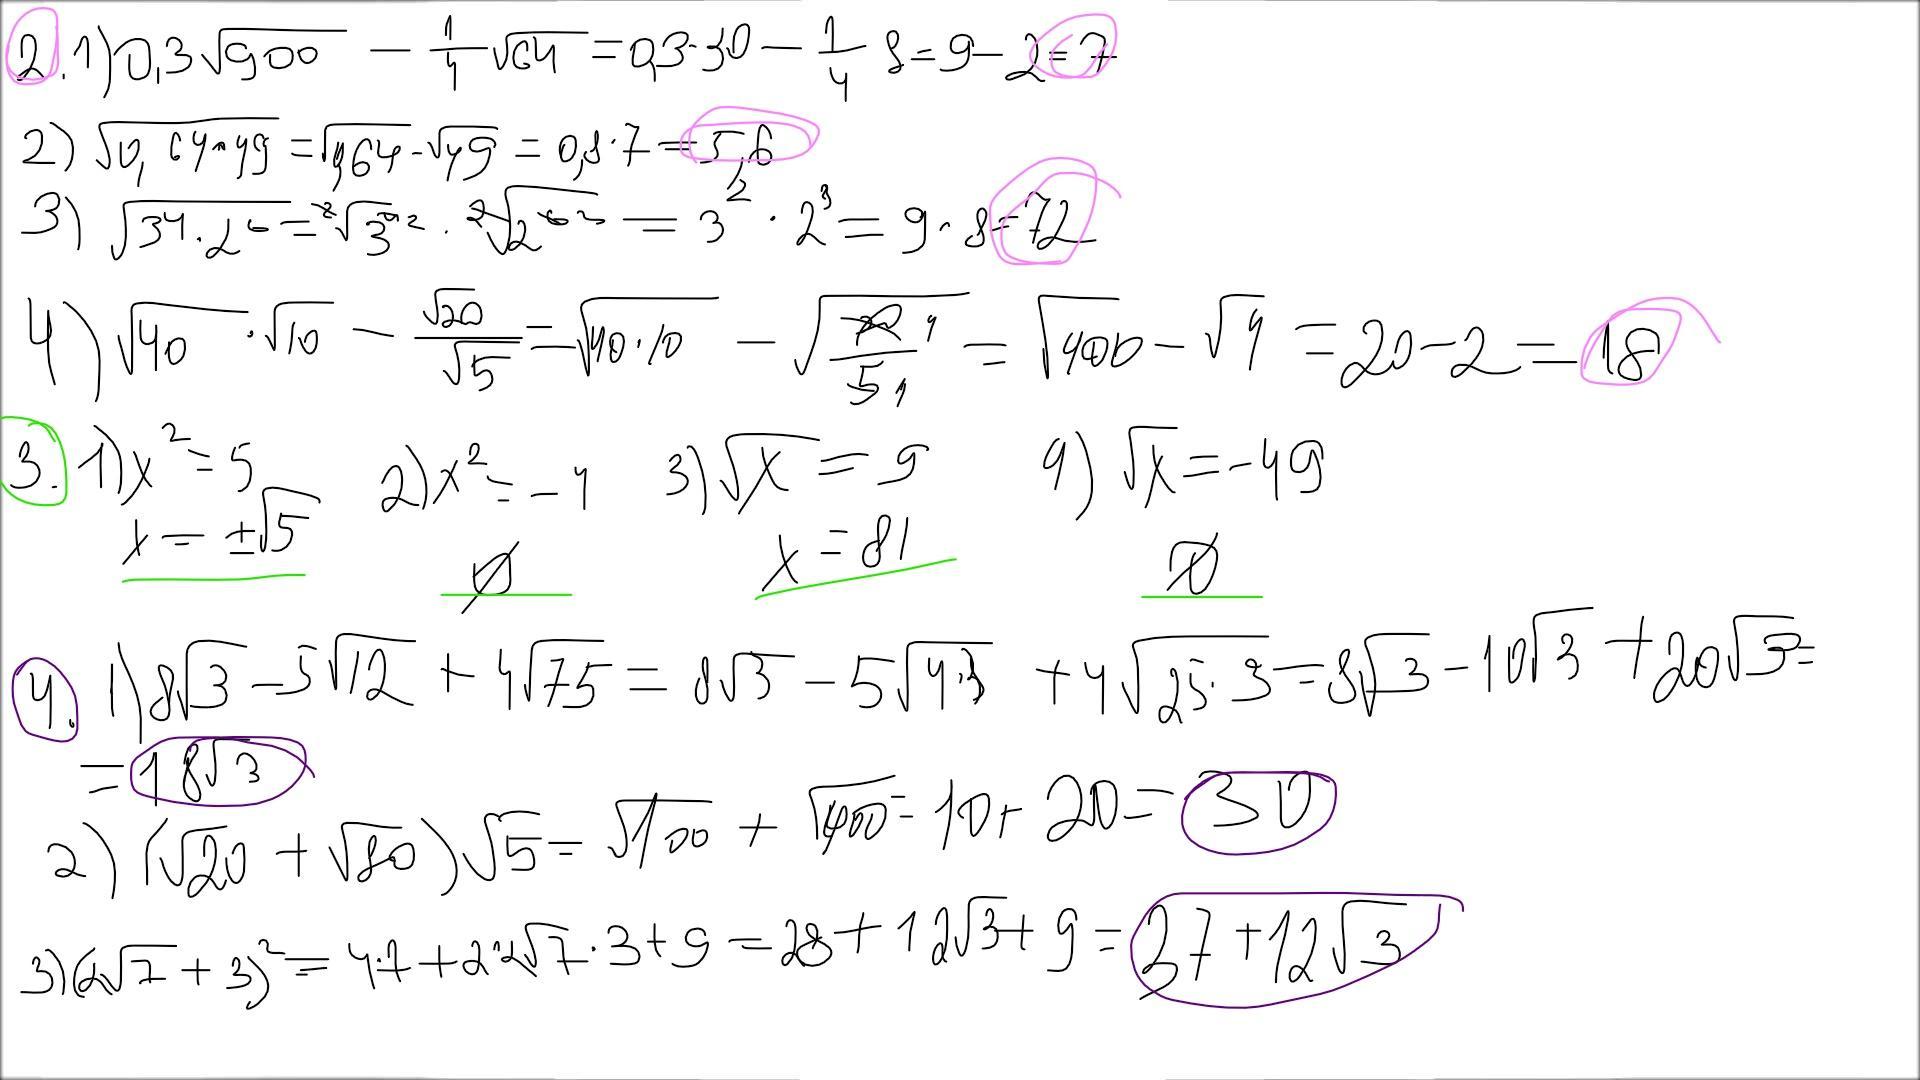 2. 1) 0,3√900 - 1/4 √64 = 0,3·30 - 1/4 8 = 9 - 2 = 7
2) √0,64·49 = √0,64 · √49 = 0,8·7 = 5,6
3) √3⁴·2⁶ = ²√3⁴² · ²√2⁶² = 3² · 2³ = 9·8 = 72
4) √40 · √10 - √20/√5 = √40·10 - √20/5 4/1 = √400 - √4 = 20 - 2 = 18
3. 1) x² = 5 2) x² = -4 3) √x = 9 4) √x = -49
x = ±√5 ∅ x = 81 ∅
4. 1) 8√3 - 5√12 + 4√75 = 8√3 - 5√4·3 + 4√25·3 = 8√3 - 10√3 + 20√3 =
= 18√3
2) (√20 + √80)√5 = √100 + √400 = 10 + 20 = 30
3) (2√7 + 3)² = 4·7 + 2·2√7·3 + 9 = 28 + 12√3 + 9 = 37 + 12√3